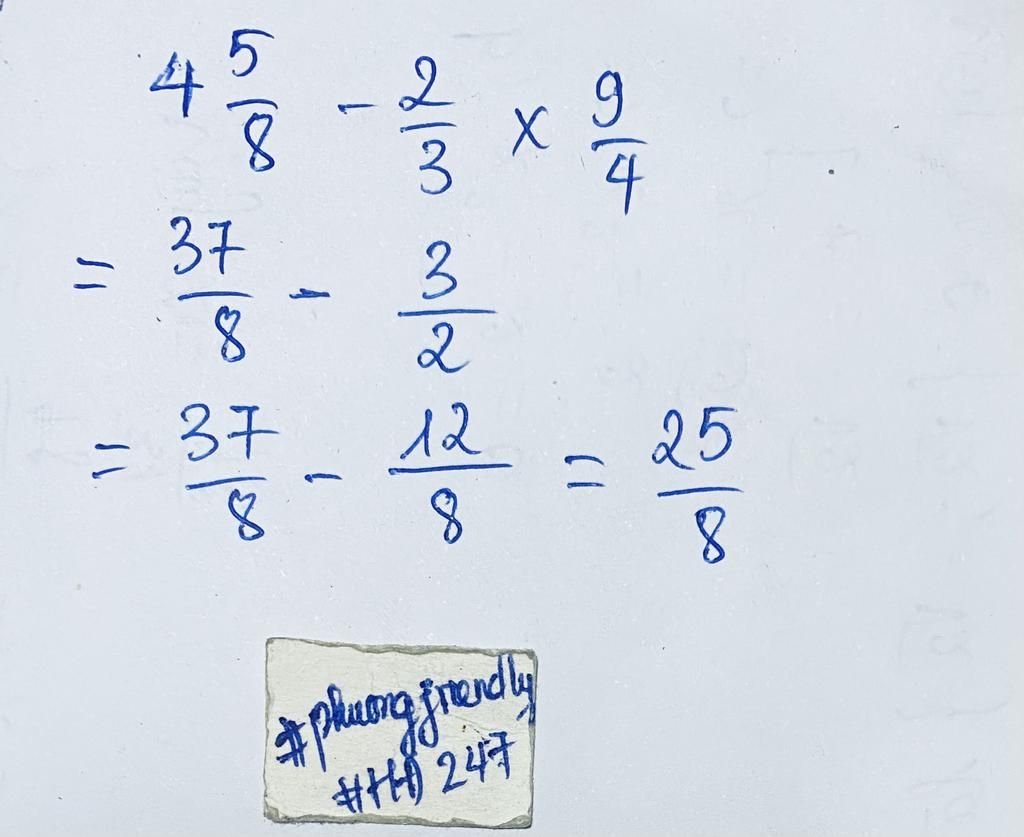 4 5/8 - 2/3 x 9/4
= 37/8 - 3/2
= 37/8 - 12/8 = 25/8
#phuongfriendly
#HD 247